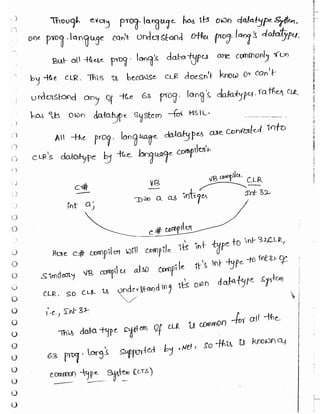 Though every prog. language has its own datatype System,
one prog. language can't understand other prog. lang's datatypes.
But all these prog. lang's data types are commonly run
by the CLR. This is because CLR doesn't know or can't
understand any of the 63 prog. lang's datatypes, rather CLR
has its own datatype System for MSIL.
All the prog. language datatypes are converted into
CLR's datatype by the language compilers.
C# VB VB compiler CLR
int a; Dim a as integer Int 32
C# compiler
Here C# compiler will compile its int type to int 32 CLR,
Similarly VB compiler also compile it's int type to int32 of
CLR. SO CLR is understanding it's own datatype System
i.e., Int 32
This data type System of CLR is common for all the
63 prog. lang's Supported by .Net, So this is known as
common type System (CTS)